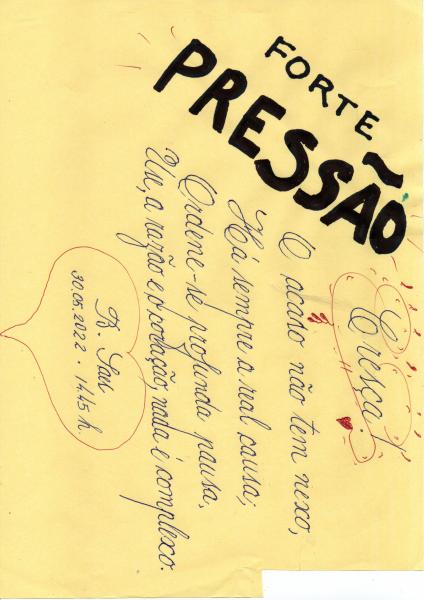 FORTE
PRESSÃO
Cresça!
O acaso não tem nexo,
Há sempre a real causa;
Ordene-se profunda pausa,
a razão e o coração, nada é complexo.
30.05.2022 - 14:45 h